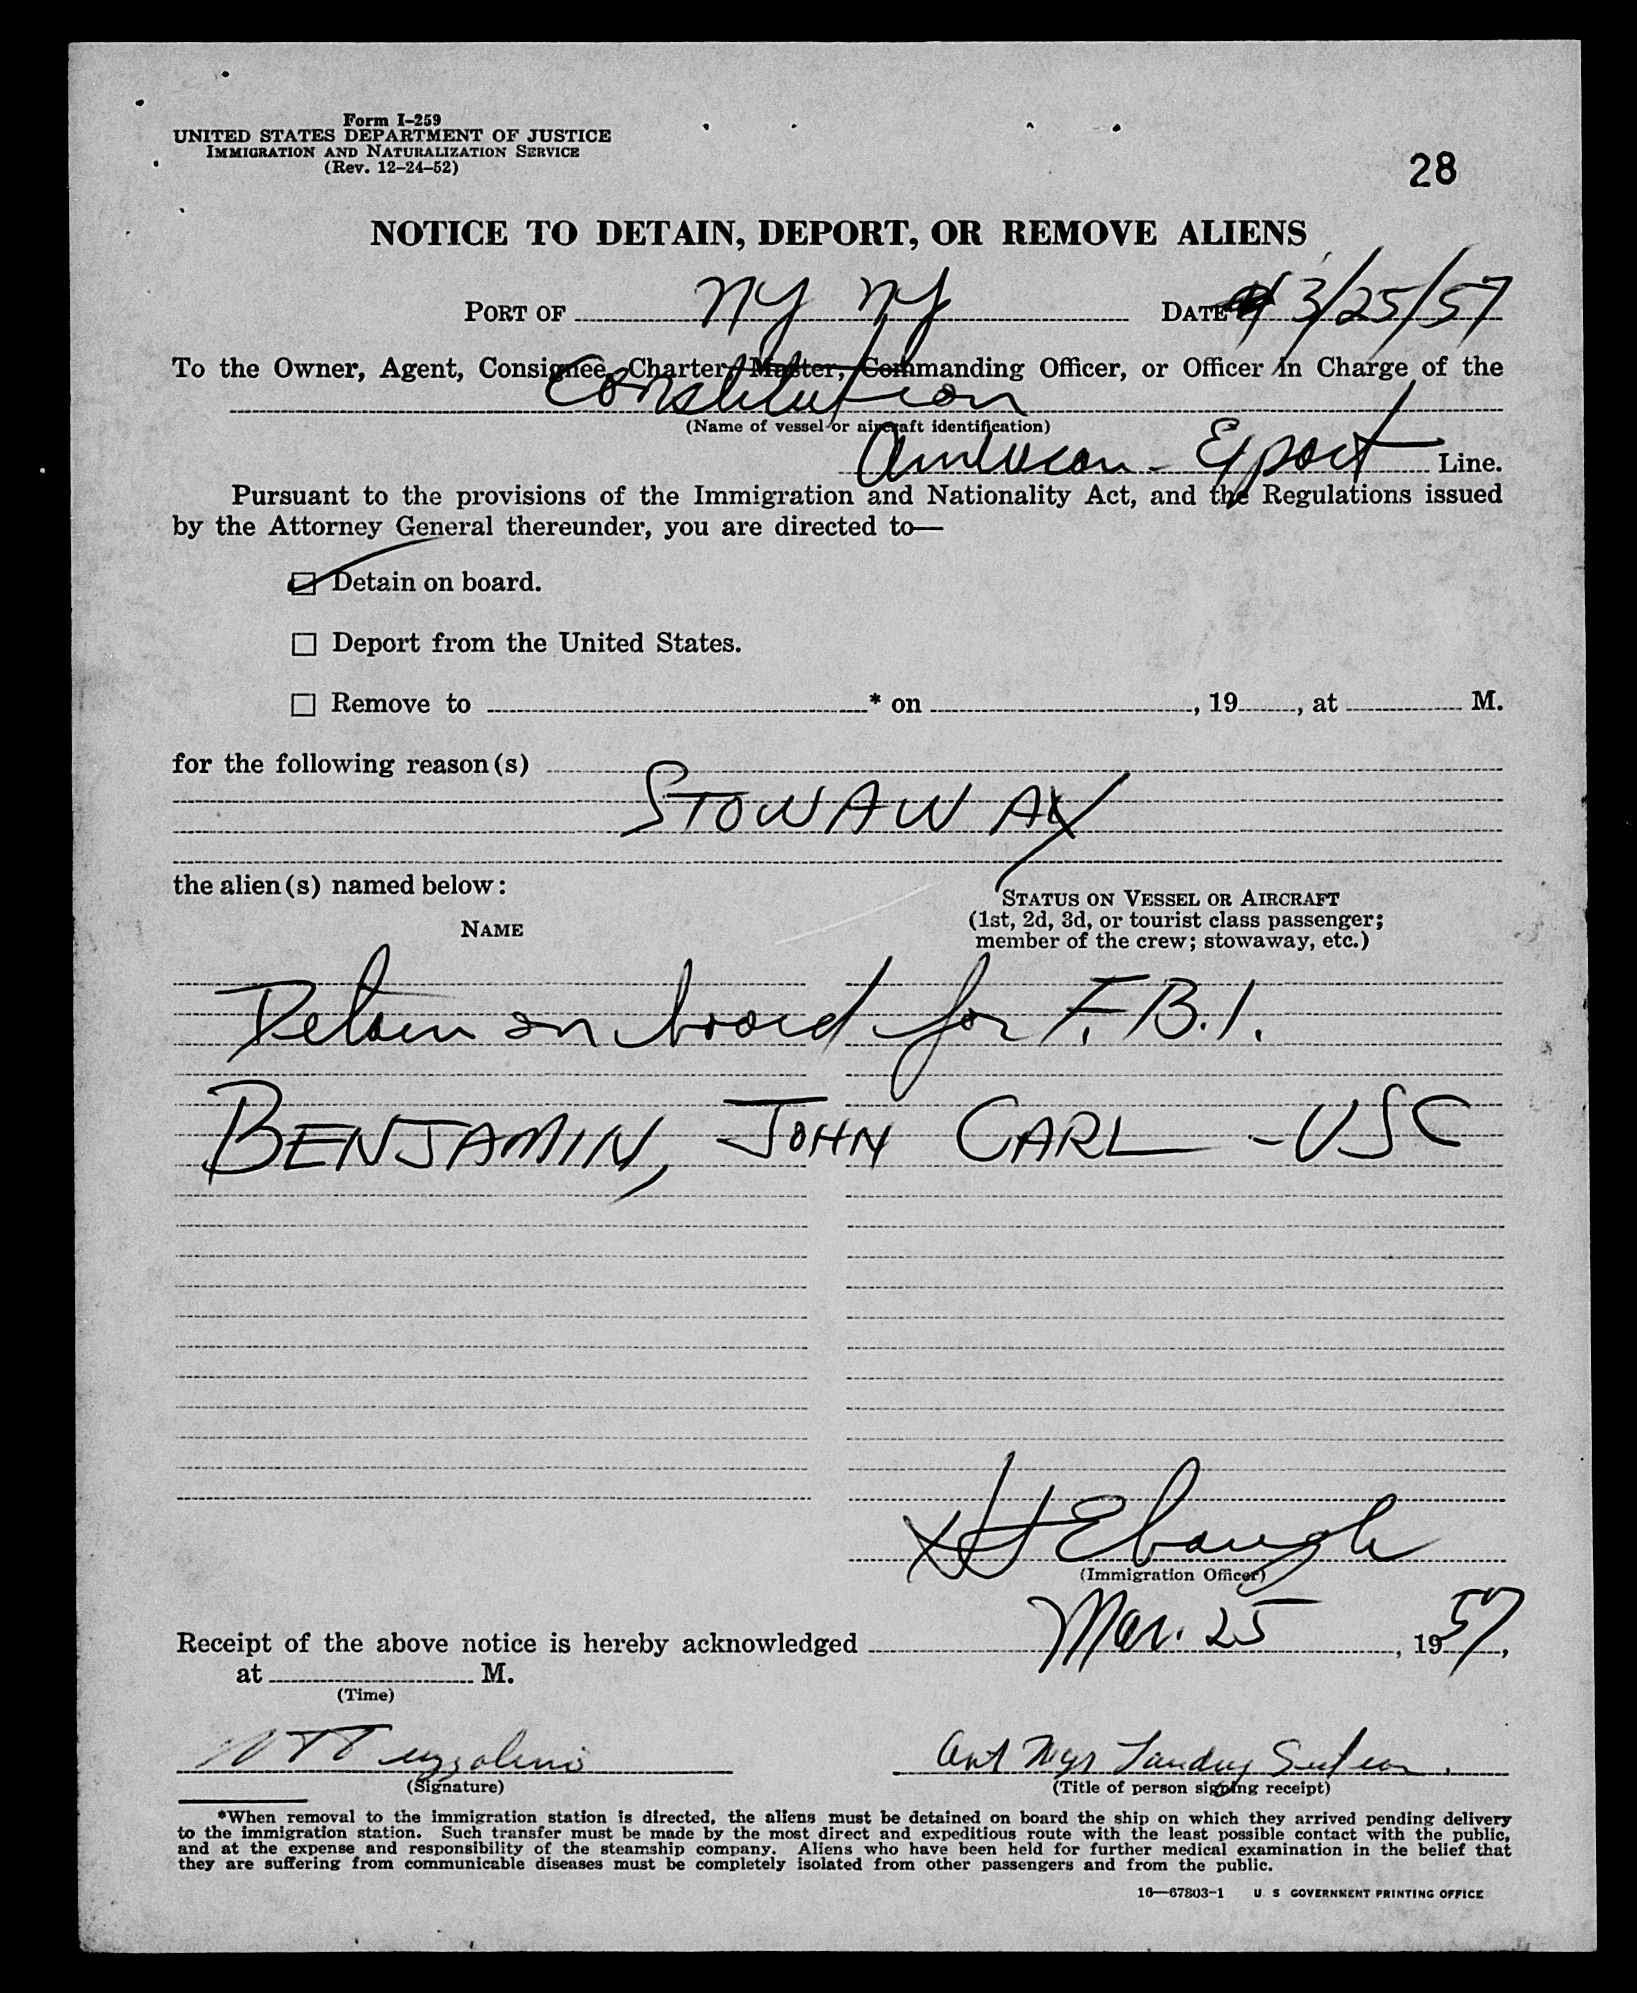 Form I-259
UNITED STATES DEPARTMENT OF JUSTICE
IMMIGRATION AND NATURALIZATION SERVICE
(Rev. 12-24-52)
28
NOTICE TO DETAIN, DEPORT, OR REMOVE ALIENS
PORT OF NY NY DATE 3/25/57
To the Owner, Agent, Consignee, Charter, Master, Commanding Officer, or Officer in Charge of the
Constitution
(Name of vessel or aircraft identification)
American - Export Line.
Pursuant to the provisions of the Immigration and Nationality Act, and the Regulations issued
by the Attorney General thereunder, you are directed to—
Detain on board.
Deport from the United States.
Remove to * on , 19 , at M.
for the following reason(s)
STOWAWAY
the alien(s) named below:
STATUS ON VESSEL OR AIRCRAFT
(1st, 2d, 3d, or tourist class passenger;
member of the crew; stowaway, etc.)
NAME
Detain on board for F.B.I.
BENJAMIN, JOHN CARL - USC
Ebaugh
(Immigration Officer)
Receipt of the above notice is hereby acknowledged Mar. 25, 1957,
at M.
(Time)
Mgr
(Signature) (Title of person signing receipt)
*When removal to the immigration station is directed, the aliens must be detained on board the ship on which they arrived pending delivery
to the immigration station. Such transfer must be made by the most direct and expeditious route with the least possible contact with the public,
and at the expense and responsibility of the steamship company. Aliens who have been held for further medical examination in the belief that
they are suffering from communicable diseases must be completely isolated from other passengers and from the public.
16—67803-1 U S GOVERNMENT PRINTING OFFICE